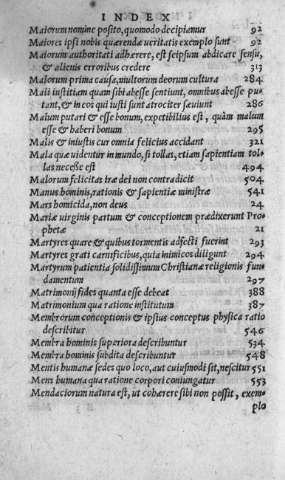 INDEX
Maiorum nomine posito, quomodo decipiamur 92
Maiores ipsi nobis quærendæ veritatis exemplo sunt 92
Maiorum authoritati adhærere, est seipsum abdicare sensu,
& alienis erroribus credere 313
Malorum prima causa, multorum deorum cultura 284
Mali iustitiam quam sibi abesse sentiunt, omnibus abesse putant,
& in eos qui iusti sunt atrociter sæuiunt 286
Malum putari & esse bonum, expetibilius est, quàm malum
esse & haberi bonum 295
Malis & iniustis cur omnia felicius accidant 321
Mala quæ uidentur in mundo, si tollas, etiam sapientiam tollas
necesse est 494
Malorum felicitas iræ dei non contradicit 504
Manus hominis, rationis & sapientiæ ministræ 541
Mars homicida, non deus 24
Mariæ virginis partum & conceptionem prædixerunt Prophetæ
21
Martyres quare & quibus tormentis adfecti fuerint 293
Martyres grati carnificibus, quia inimicos diligunt 294
Martyrum patientia solidissimum Christianæ religionis fundamentum
297
Matrimonij fides quanta esse debeat 388
Matrimonium qua ratione institutum 387
Membrorum conceptionis & ipsius conceptus physica ratio
describitur 546
Membra hominis superiora describuntur 534
Membra hominis subdita describuntur 548
Mentis humanæ sedes quo loco, aut cuiusmodi sit, nescitur 551
Mens humana qua ratione corpori coniungatur 553
Mendaciorum natura est, ut cohærere sibi non possit, exemplo